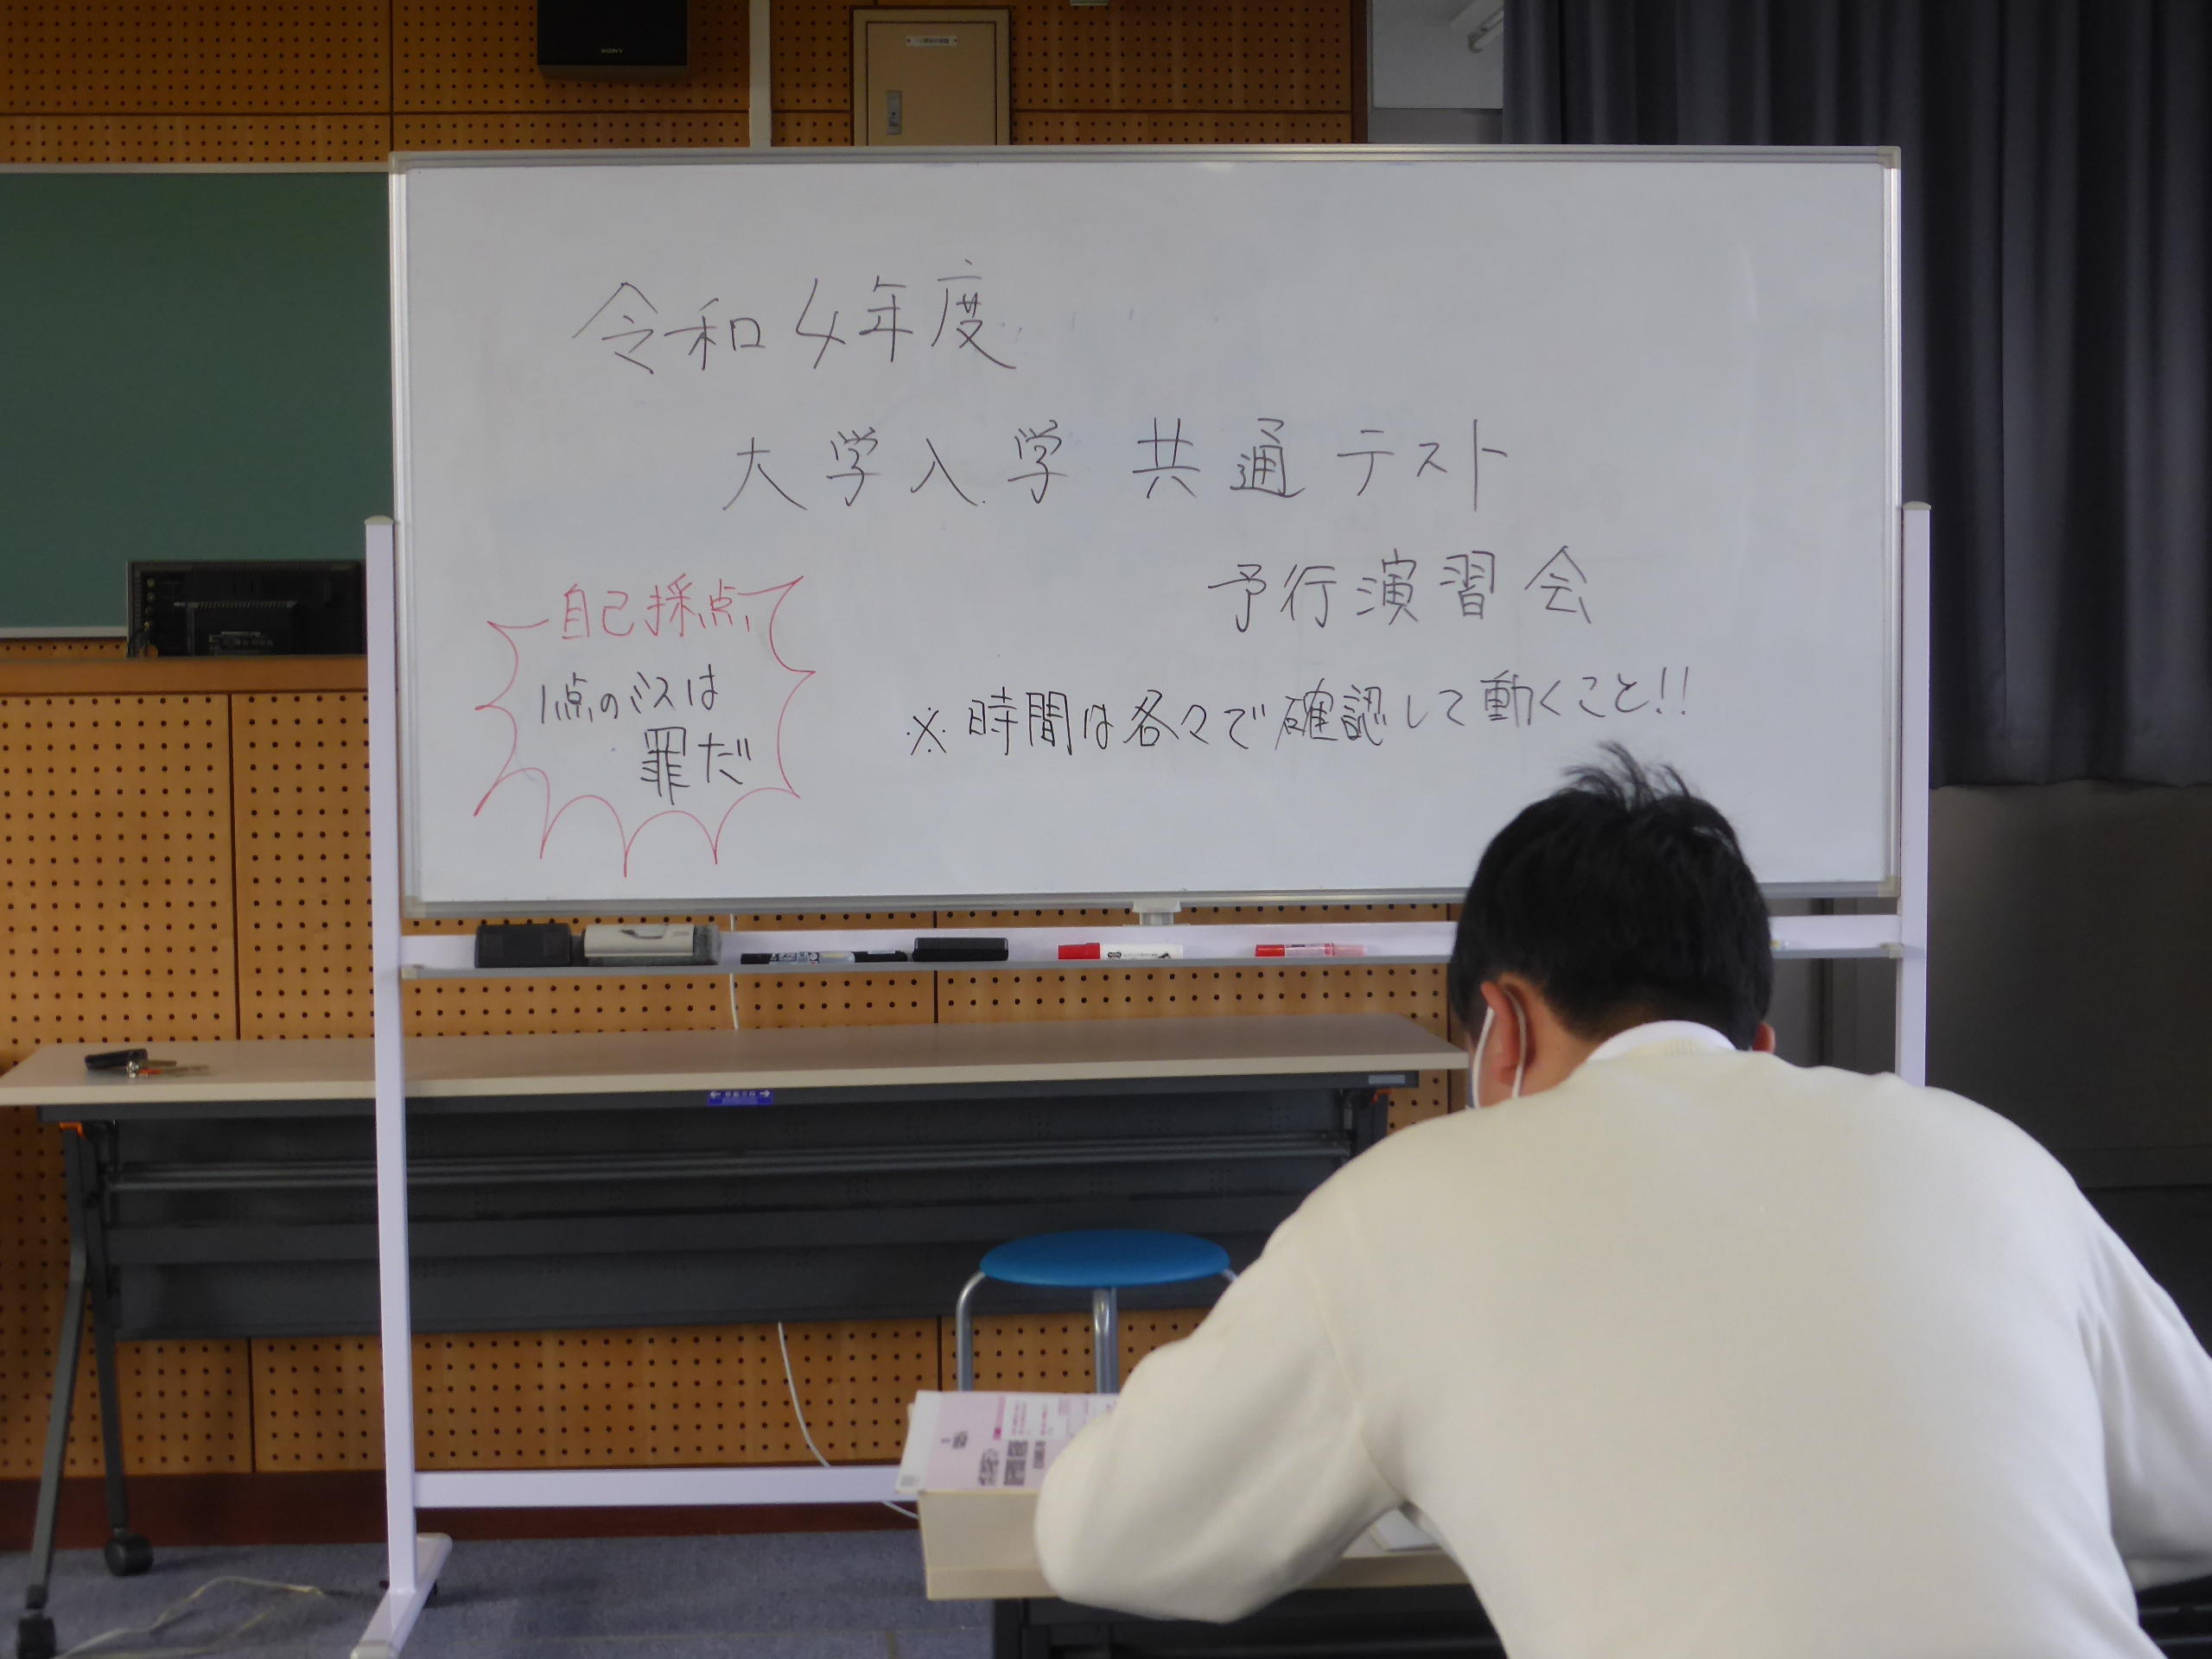 SONY
令和4年度
大学入学共通テスト
予行演習会
自己採点
1点のミスは
罪だ
※時間は各々で確認して動くこと!!